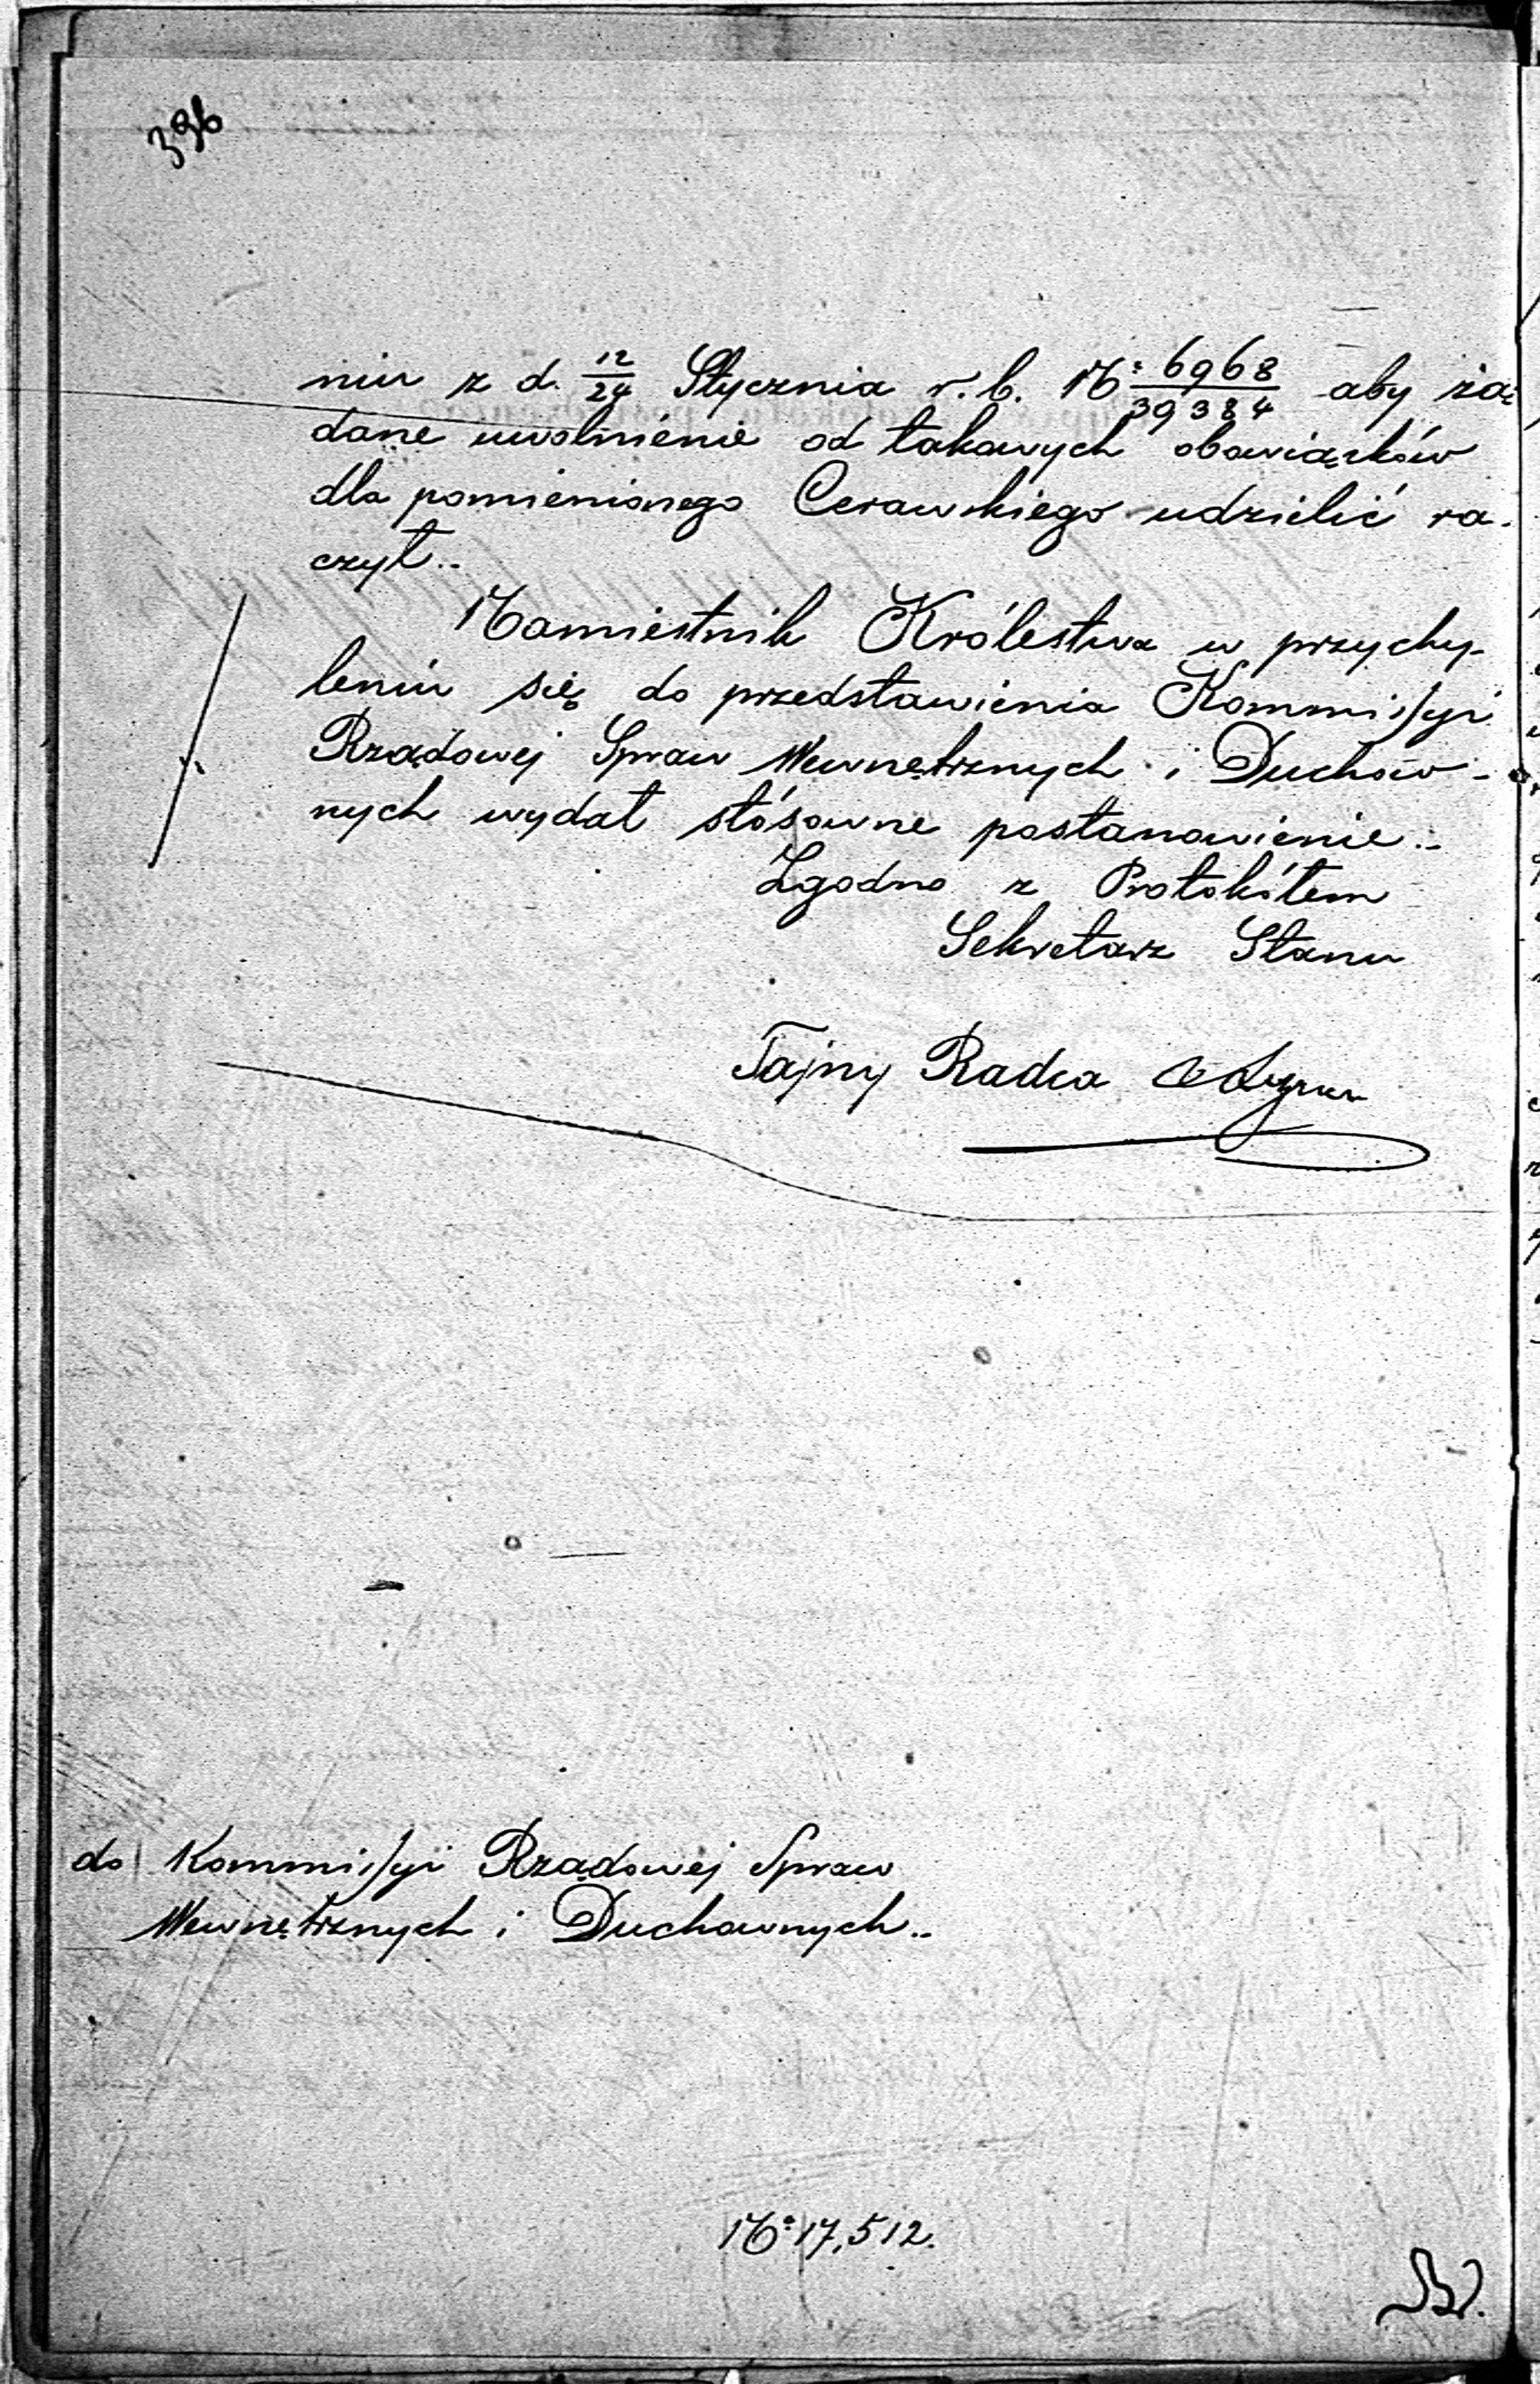 396
niu z d. 12/24 Stycznia r. b. No 6968/39384 aby żą-
dane uwolnienie od takowych obowiązków
dla pomienionego Cerawskiego udzielić ra-
czył.
Namiestnik Królestwa w przychy-
leniu się do przedstawienia Kommissyi
Rządowej Spraw Wewnętrznych i Duchow-
nych wydał stósowne postanowienie.
Zgodno z Protokółem
Sekretarz Stanu
Tajny Radca
do Kommissyi Rządowej Spraw
Wewnętrznych i Duchownych.
No 17,512.